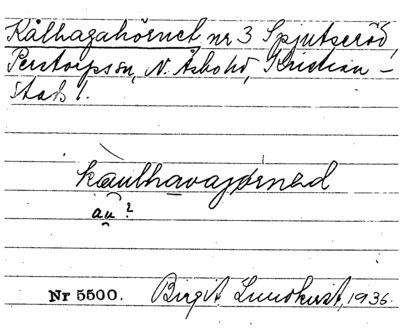 Kålhagahörnet nr 3 Spjutseröd,
Perstorps sn, N. Åsbo hd, Kristian-
stads l.
kaulhavajörned
au?
Nr 5500. Birgit Lundkvist, 1936.